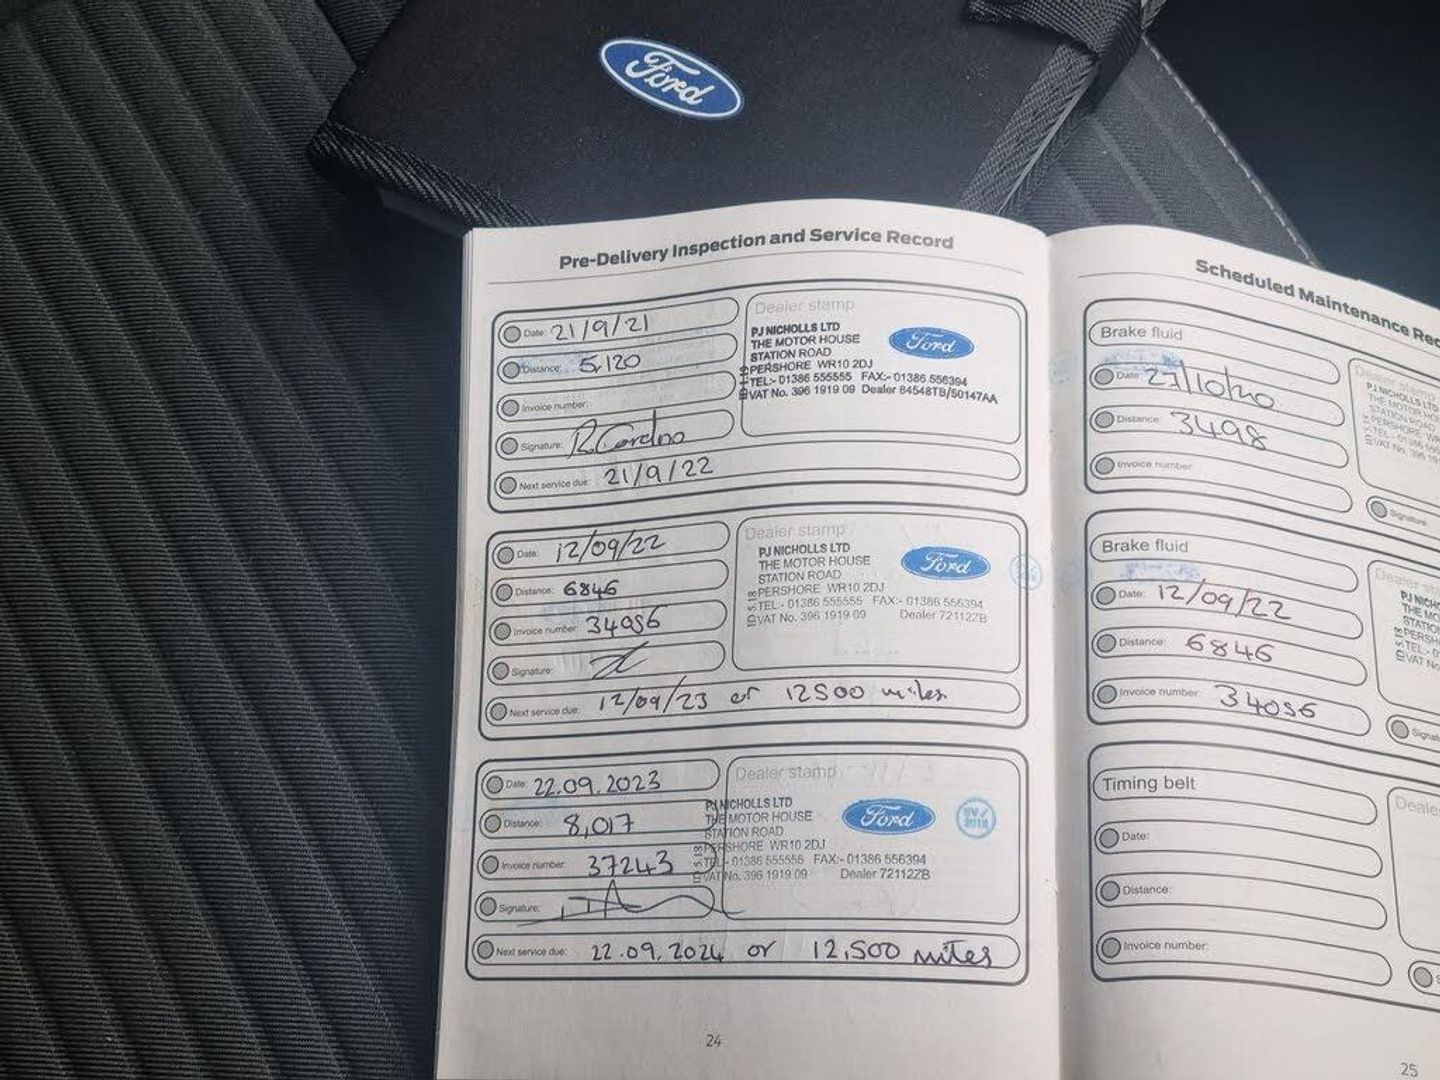 Ford
Pre-Delivery Inspection and Service Record
Date: 21/9/21
Distance: 5,120
Invoice number:
Signature: R Cardno
Next service due: 21/9/22
Dealer stamp
PJ NICHOLLS LTD
THE MOTOR HOUSE
STATION ROAD
PERSHORE WR10 2DJ
TEL:- 01386 555555 FAX:- 01386 556394
VAT No. 396 1919 09 Dealer 84548TB/50147AA
Ford
Date: 12/09/22
Distance: 6846
Invoice number: 34056
Signature:
Next service due: 12/09/23 or 12500 miles
Dealer stamp
PJ NICHOLLS LTD
THE MOTOR HOUSE
STATION ROAD
PERSHORE WR10 2DJ
TEL:- 01386 555555 FAX:- 01386 556394
VAT No. 396 1919 09 Dealer 72112ZB
Ford
Date: 22.09.2023
Distance: 8,017
Invoice number: 37243
Signature:
Next service due: 22.09.2024 or 12,500 miles
Dealer stamp
PJ NICHOLLS LTD
THE MOTOR HOUSE
STATION ROAD
PERSHORE WR10 2DJ
TEL:- 01386 555555 FAX:- 01386 556394
VAT No. 396 1919 09 Dealer 72112ZB
Ford
24
Scheduled Maintenance Rec
Brake fluid
Date: 27/10/20
Distance: 3498
Invoice number:
Signature
PJ NICHOLLS LTD
Brake fluid
Date: 12/09/22
Distance: 6846
Invoice number: 34056
Signat
Timing belt
Date:
Distance:
Invoice number:
Deale
25